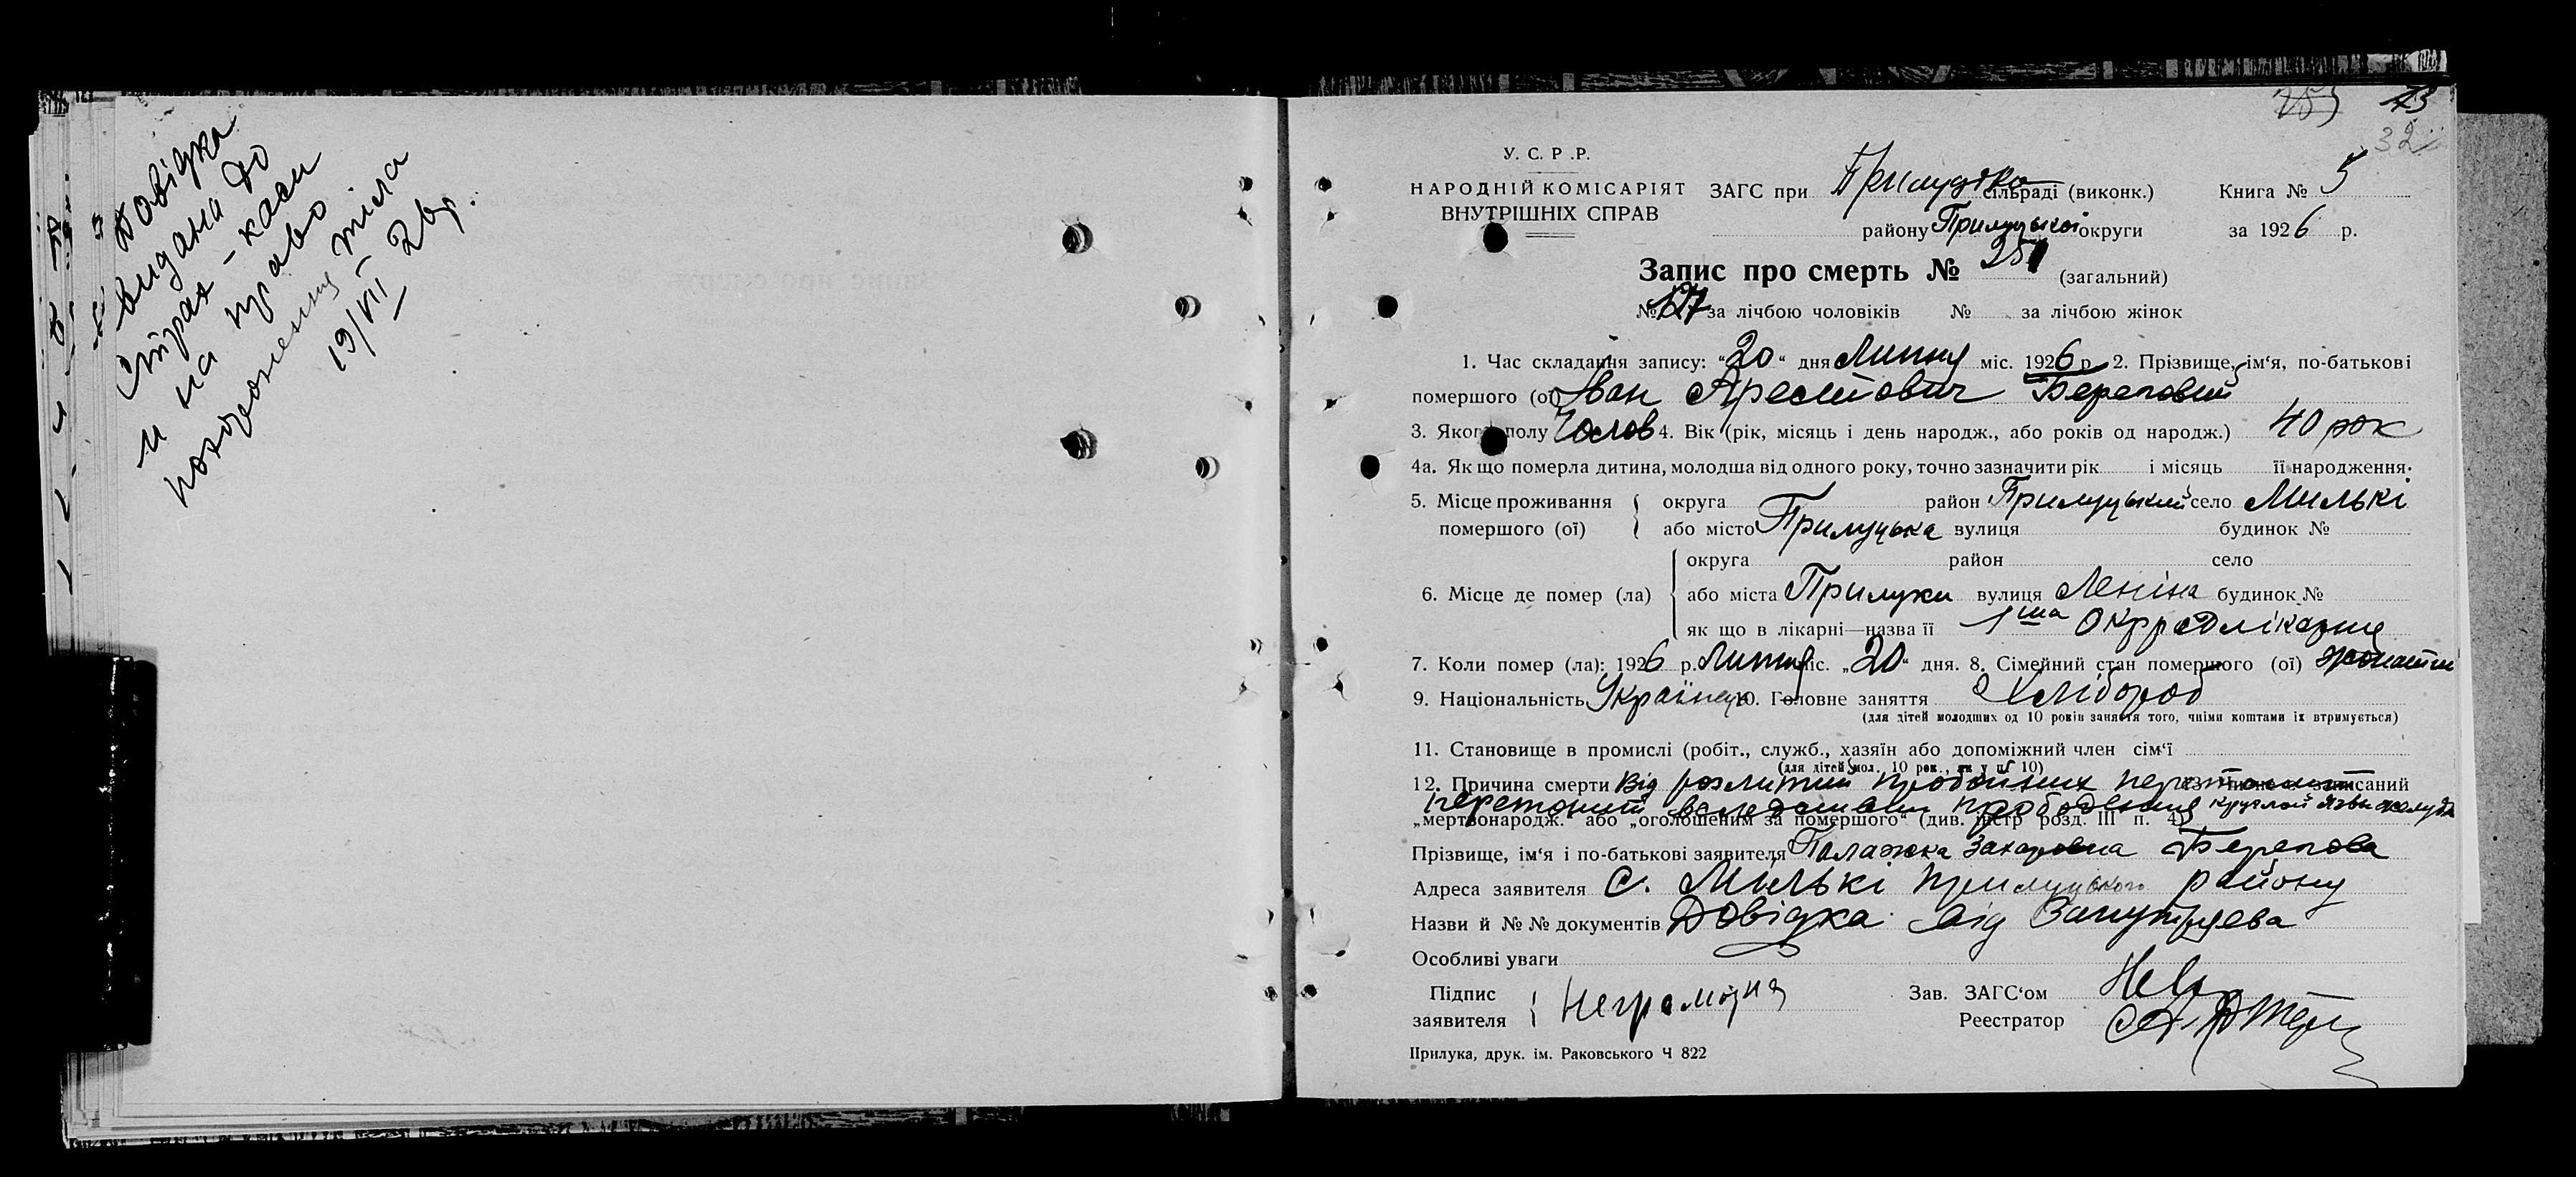 Довідка
видана до
Страх-каси
и на право
похоронення тіла
19/VII 26р.
32
У. С. Р. Р.
НАРОДНІЙ КОМІСАРІЯТ
ВНУТРІШНІХ СПРАВ
ЗАГС при сільраді (виконк.) Книга № 5
району Прилуцької округи за 1926 р.
Запис про смерть № 251 (загальний)
№ за лічбою чоловіків № за лічбою жінок
1. Час складання запису: "20" дня Липня міс. 1926 р. 2. Прізвище, ім‘я, по-батькові
помершого (ої) Іван Арестович
3. Якого полу Чолов 4. Вік (рік, місяць і день народж., або років од народж.) 40 рок
4а. Як що померла дитина, молодша від одного року, точно зазначити рік і місяць її народження.
5. Місце проживання округа район Прилуцький село Милькі
помершого (ої) або місто Прилуцька вулиця будинок №
округа район село
6. Місце де помер (ла) або міста Прилуки вулиця Леніна будинок №
як що в лікарні—назва її 1ша Окррадлікарня
7. Коли помер (ла): 1926 р. Липня міс. „20“ дня. 8. Сімейний стан помершого (ої) жонатий
9. Національність Українець 10. Головне заняття Хлібороб
(для дітей молодших од 10 років заняття того, чиїми коштами їх втримується)
11. Становище в промислі (робіт., служб., хазяїн або допоміжний член сім‘ї
(для дітей мол. 10 рок., як у п. 10)
12. Причина смерти Від розлитий 13. записаний
перетонит вследствии прободения круглой язвы желудка
„мертвонародж.“ або „оголошеним за помершого“ (див. інстр розд. III п. 4)
Прізвище, ім‘я і по-батькові заявителя Палажка Захаровна
Адреса заявителя С. Милькі Прилуцького району
Назви й № № документів Довідка від
Особливі уваги
Підпис
заявителя Неграмотна
Зав. ЗАГС‘ом
Реестратор
Прилука, друк. ім. Раковського Ч 822